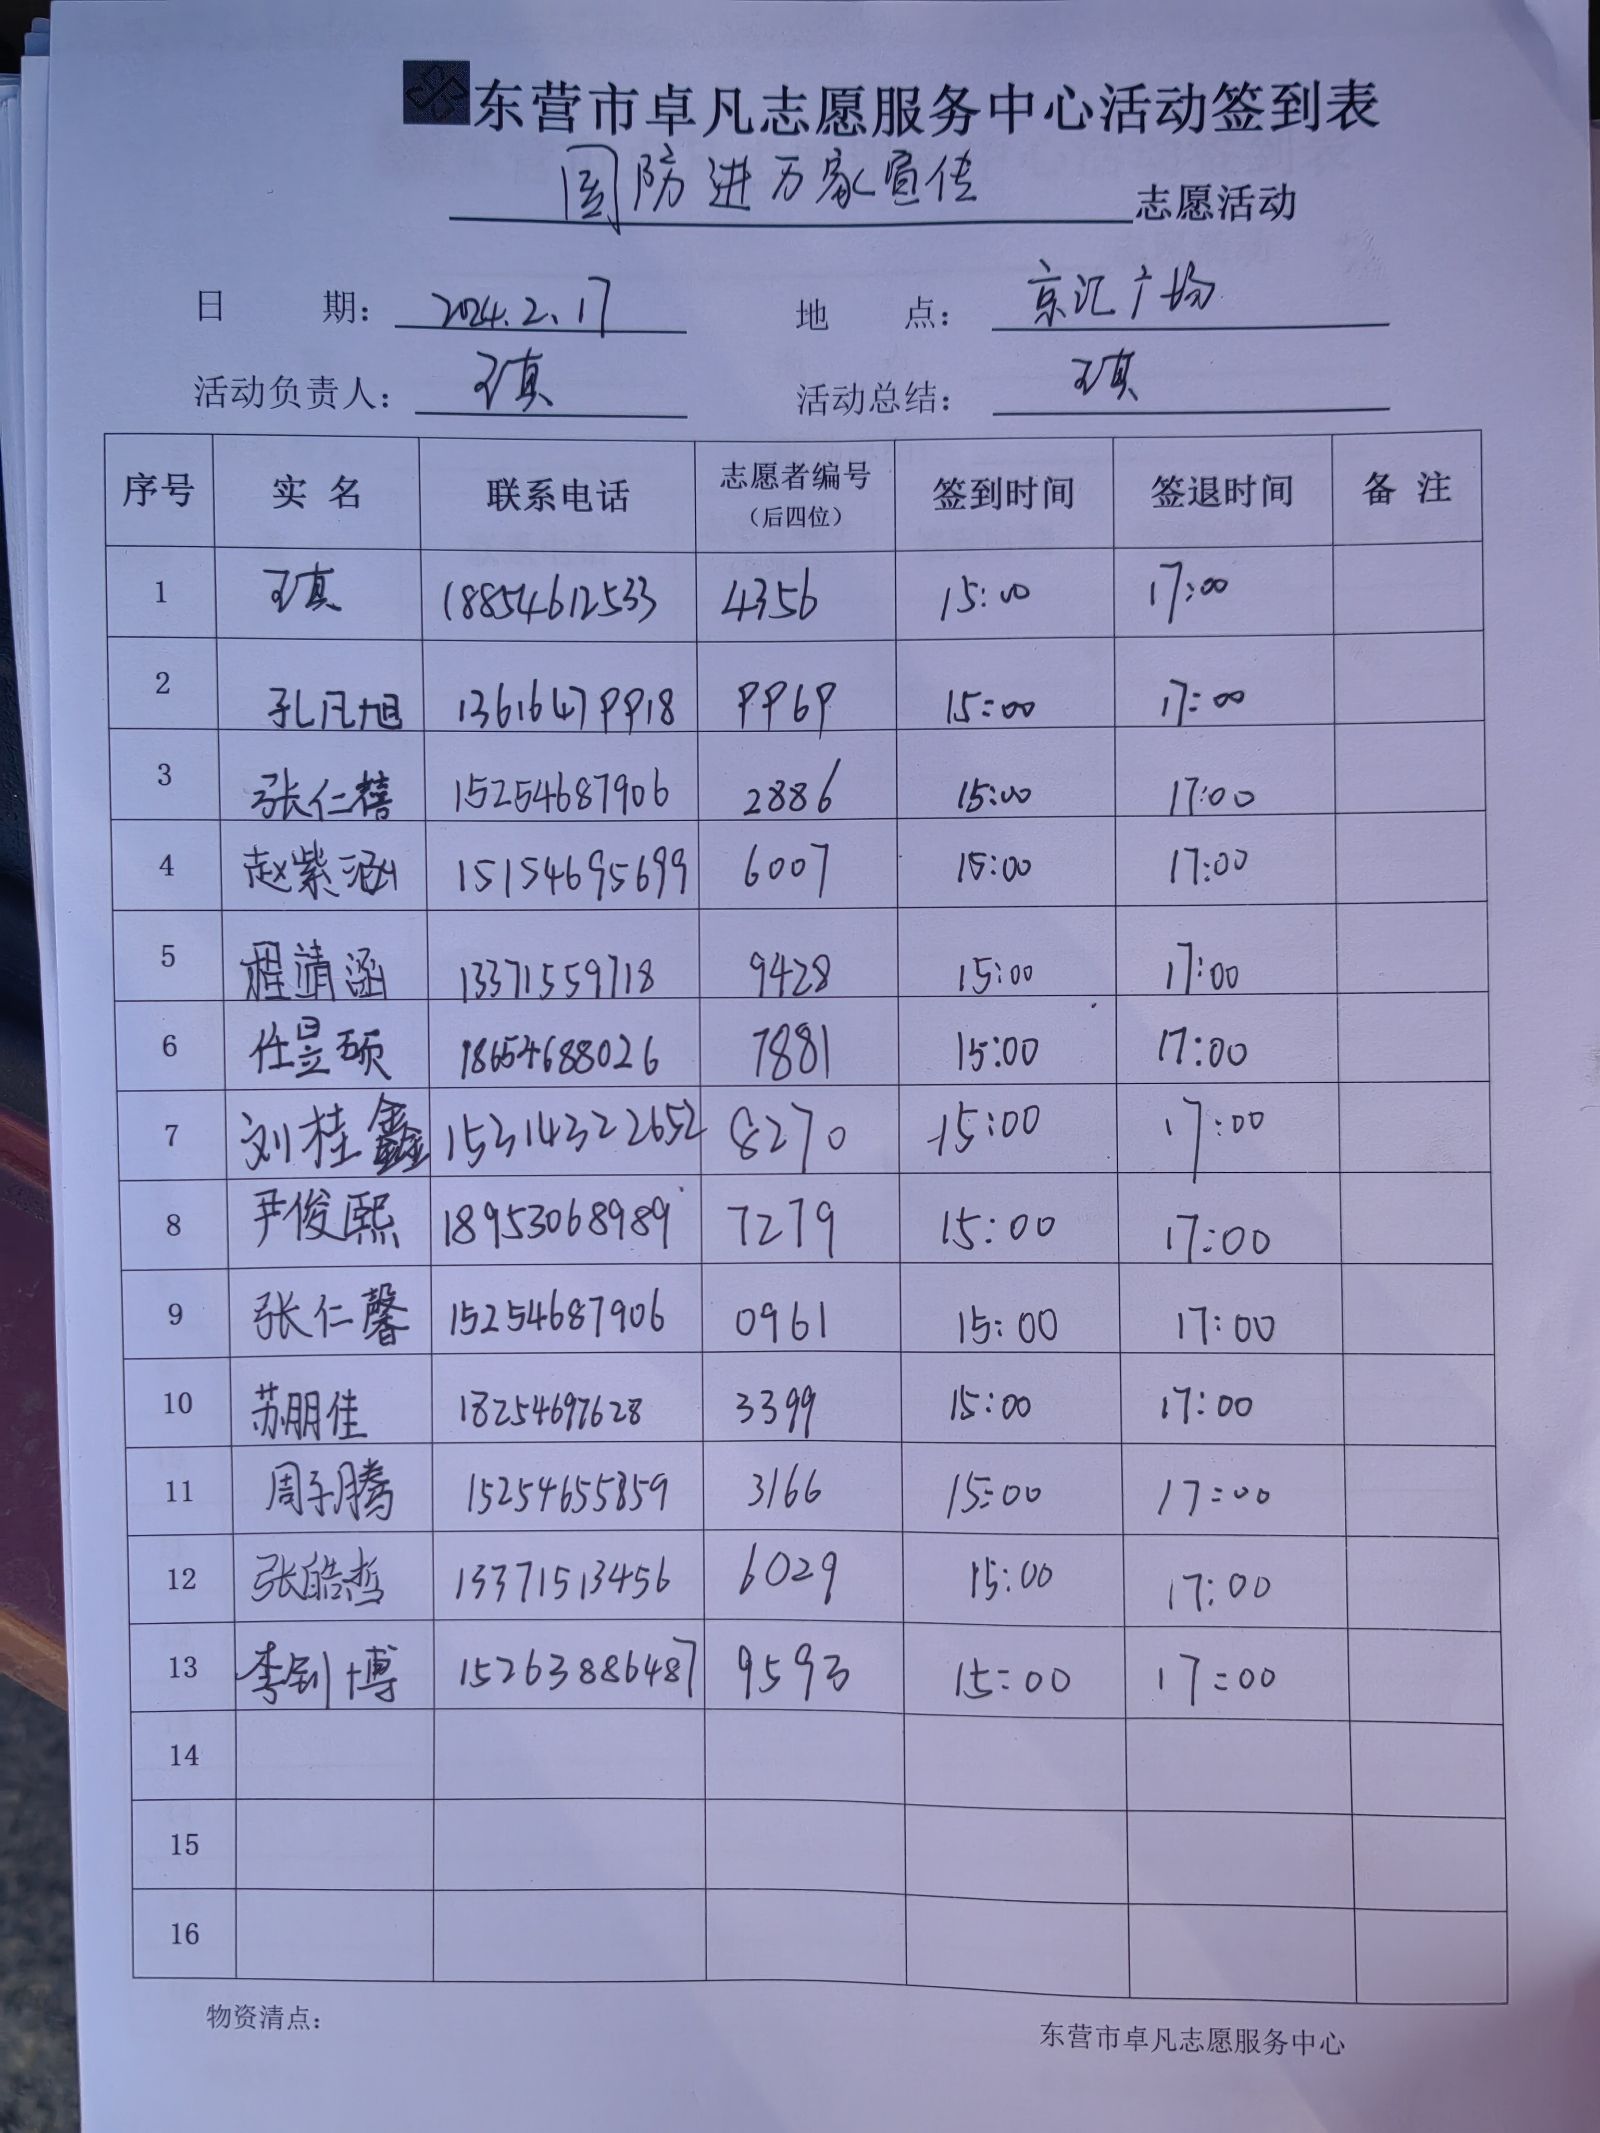 东营市卓凡志愿服务中心活动签到表
国防进万家宣传 志愿活动
日 期： 2024.2.17 地 点： 京汇广场
活动负责人： 王真 活动总结： 王真
序号 实 名 联系电话 志愿者编号（后四位） 签到时间 签退时间 备 注
1 王真 18854612533 4356 15:00 17:00
2 孔凡旭 13616479918 9969 15:00 17:00
3 张仁禧 15254687906 2886 15:00 17:00
4 赵紫涵 15154695699 6007 15:00 17:00
5 程靖涵 13371559718 9428 15:00 17:00
6 任昱硕 18654688026 7881 15:00 17:00
7 刘桂鑫 15314322652 8270 15:00 17:00
8 尹俊熙 18953068989 7279 15:00 17:00
9 张仁馨 15254687906 0961 15:00 17:00
10 苏朋佳 18254697628 3399 15:00 17:00
11 周子腾 15254655859 3166 15:00 17:00
12 张皓哲 13371513456 6029 15:00 17:00
13 李钊博 15263886487 9593 15:00 17:00
14
15
16
物资清点：
东营市卓凡志愿服务中心